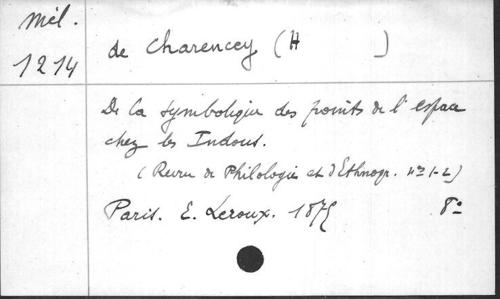 Mél.
1214
de Charencey (H )
De la symbolique des points de l'espace
chez les Indous.
(Revue de Philologie et d'Ethnogr. nos 1-2)
Paris. E. Leroux. 1875 8°